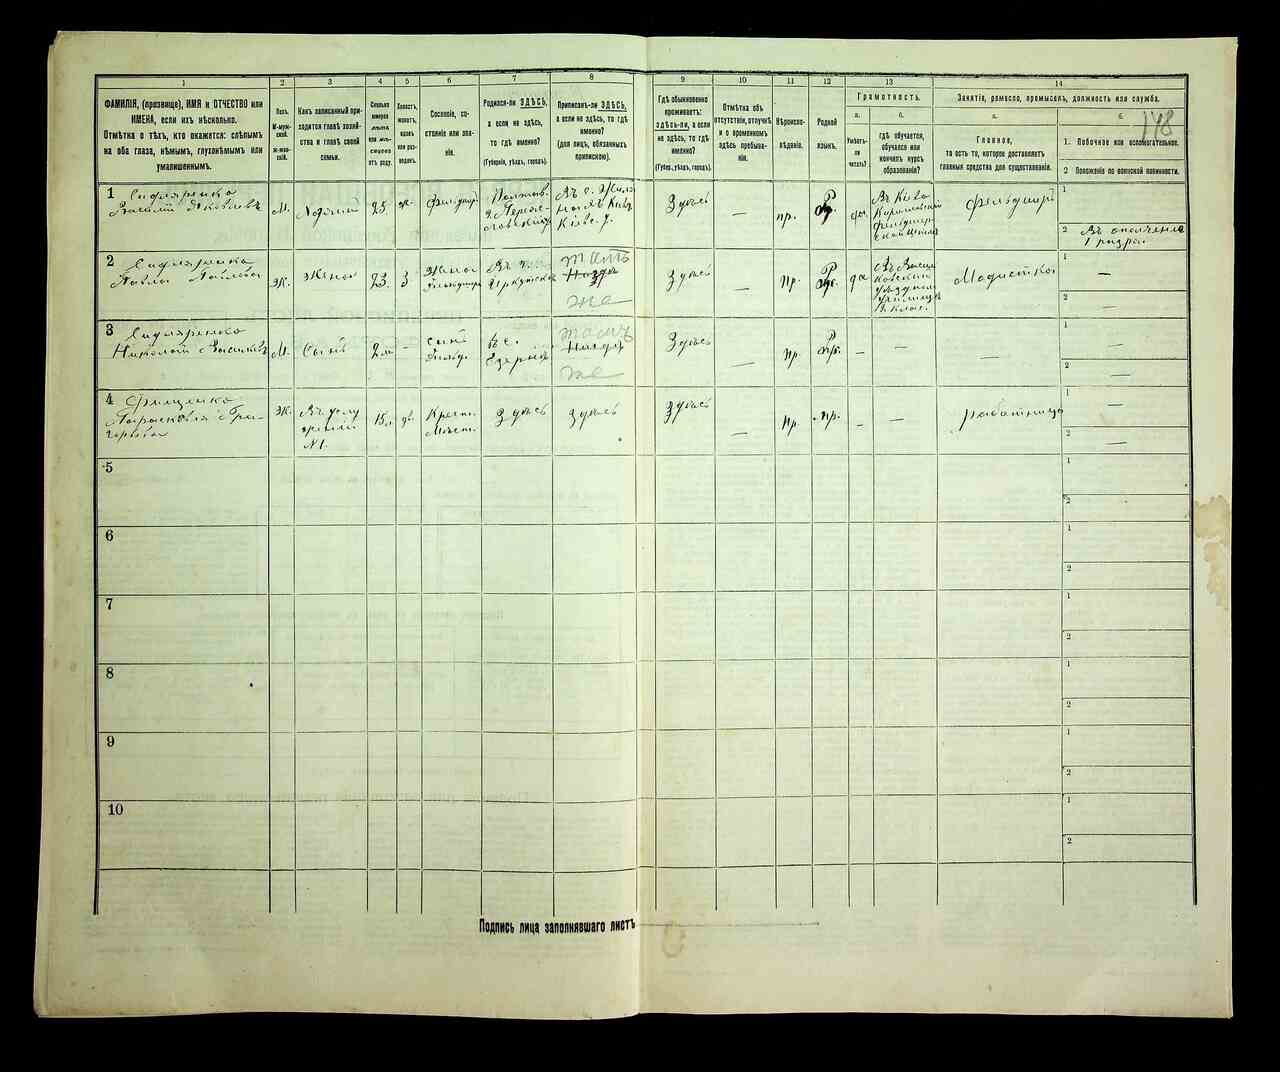 1 2 3 4 5 6 7 8 9 10 11 12 13 14
ФАМИЛІЯ, (прозвище), ИМЯ и ОТЧЕСТВО или
ИМЕНА, если ихъ нѣсколько.
Отмѣтка о тѣхъ, кто окажется: слѣпымъ
на оба глаза, нѣмымъ, глухонѣмымъ или
умалишеннымъ.
Полъ.
М-мужской.
Ж-женскій.
Какъ записанный при-
ходится главѣ хозяй-
ства и главѣ своей
семьи.
Сколько
минуло
лѣтъ
или мѣ-
сяцевъ
отъ роду.
Холостъ,
женатъ,
вдовъ
или раз-
веденъ.
Сословіе, со-
стояніе или зва-
ніе.
Родился-ли ЗДѢСЬ,
а если не здѣсь,
то гдѣ именно?
(Губернія, уѣздъ, городъ).
Приписанъ-ли ЗДѢСЬ,
а если не здѣсь, то гдѣ
именно?
(для лицъ, обязанныхъ
припискою).
Гдѣ обыкновенно
проживаетъ:
ЗДѢСЬ-ли, а если
не здѣсь, то гдѣ
именно?
(Губер., уѣздъ, городъ).
Отмѣтка объ
отсутствіи, отлучкѣ
и о временномъ
здѣсь пребыва-
ніи.
Вѣроиспо-
вѣданіе.
Родной
языкъ.
Грамотность.
а.
Умѣетъ-
ли
читать?
б.
гдѣ обучается,
обучался или
кончилъ курсъ
образованія?
Занятіе, ремесло, промыселъ, должность или служба.
а.
Главное,
то есть то, которое доставляетъ
главныя средства для существованія.
б.
1. Побочное или вспомогательное.
2 Положеніе по воинской повинности.
148
1 Сидляренко
Василій Яковлевъ
М. 25 ж. Фельдшер.
Полтав.
г. Перея-
славскій у.
Здѣсь — пр. Р. да
Въ Кіев.
Фельдшер-
ской школѣ
Фельдшеръ
1
2 Въ ополченіе
1 разряд
2 Сидляренко
Павла Павлова
Ж. Жена 23. З Жена
Фельдшера
Въ г.
Тамъ
же
Здѣсь — Пр. Р. да
Уѣздном
Училищѣ
Модистка
1 —
2 —
3 Сидляренко
Николай Василіевъ
М. Сынъ 2 м —
Сынъ
Фельд.
Въ с.
Тамъ
же
Здѣсь — Пр. Р. — — —
1 —
2 —
4
Парасковія Гри-
горьева
Ж. Въ услу
женіи
№ 1.
15. дѣ.
Крест.
Мѣст.
Здѣсь Здѣсь Здѣсь — Пр. — —
работница
1 —
2 —
5 1
2
6 1
2
7 1
2
8 1
2
9 1
2
10 1
2
Подпись лица заполнявшаго листъ